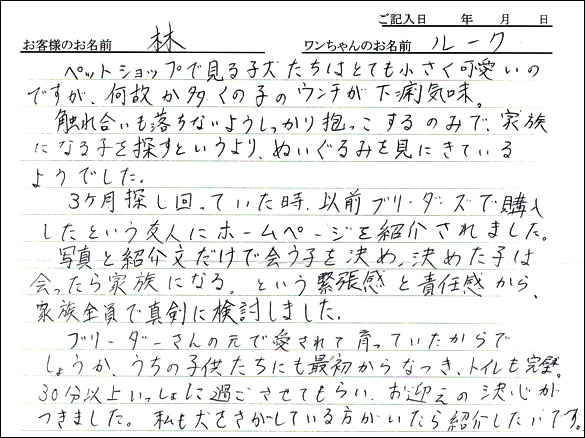 ご記入日 年 月 日
お客様のお名前 林 ワンちゃんのお名前 ルーク
ペットショップで見る子犬たちはとても小さく可愛いの
ですが、何故か多くの子のウンチが下痢気味。
触れ合いも落ちないようしっかり抱っこするのみで、家族
になる子を探すというより、ぬいぐるみを見にきている
ようでした。
3ヶ月探し回っていた時、以前ブリーダーズで購入
したという友人にホームページを紹介されました。
写真と紹介文だけで会う子を決め、決めた子は
会ったら家族になる。という緊張感と責任感から、
家族全員で真剣に検討しました。
ブリーダーさんの元で愛されて育っていたからで
しょうか、うちの子供たちにも最初からなつき、トイレも完璧。
30分以上いっしょに過ごさせてもらい、お迎えの決心が
つきました。私も犬をさがしている方がいたら紹介したいです。